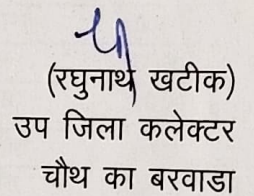 (रघुनाथ खटीक)
उप जिला कलेक्टर
चौथ का बरवाडा